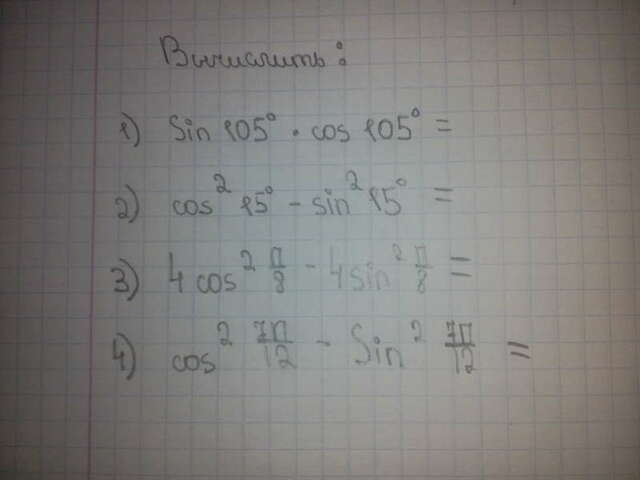 Вычислить:
1) Sin 105° · cos 105° =
2) cos² 15° - sin² 15° =
3) 4 cos² π/8 - 4 sin² π/8 =
4) cos² 7π/12 - Sin² 7π/12 =